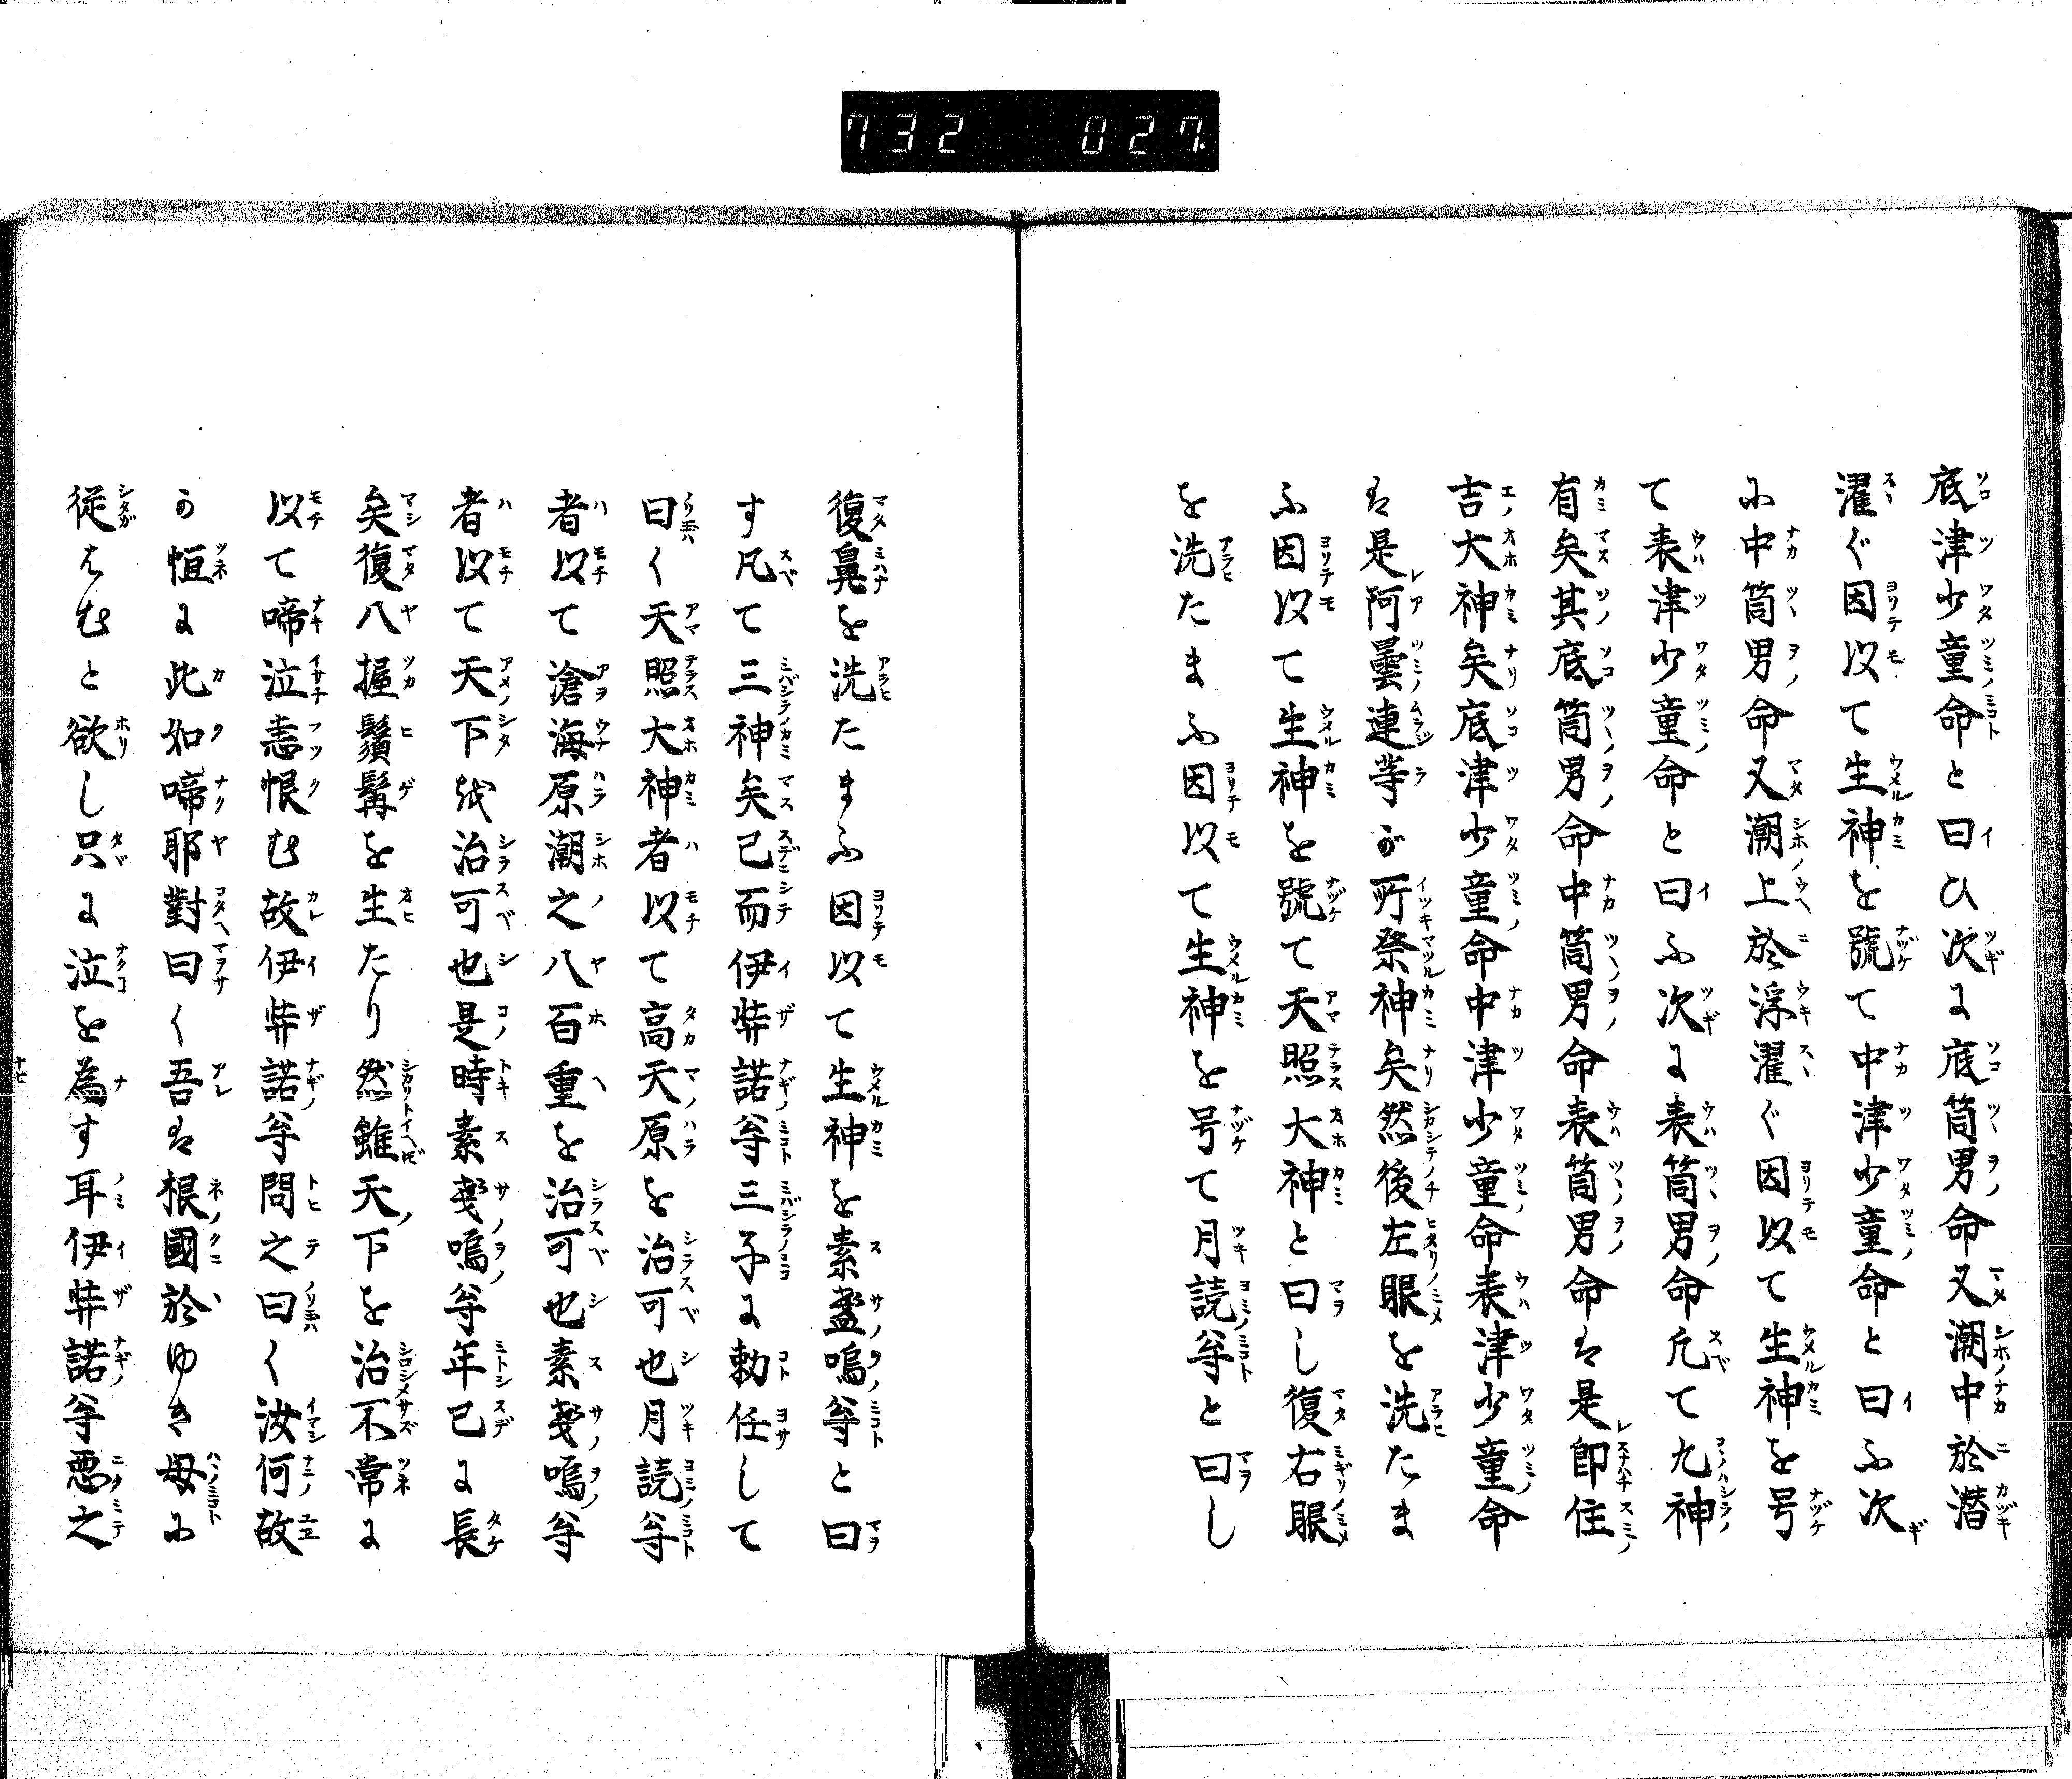 732 027
底津少童命と曰ひ次に底筒男命又潮中於潜
濯ぐ因以て生神を號て中津少童命と曰ふ次
に中筒男命又潮上於浮濯ぐ因以て生神を号
て表津少童命と曰ふ次に表筒男命凢て九神
有矣其底筒男命中筒男命表筒男命は是即住
吉大神矣底津少童命中津少童命表津少童命
は是阿曇連等が所祭神矣然後左眼を洗たま
ふ因以て生神を號て天照大神と曰し復右眼
を洗たまふ因以て生神を号て月読尊と曰し
復鼻を洗たまふ因以て生神を素盞嗚尊と曰
す凡て三神矣已而伊弉諾尊三子に勅任して
曰く天照大神者以て高天原を治可也月読尊
者以て滄海原潮之八百重を治可也素戔嗚尊
者以て天下を治可也是時素戔嗚尊年已に長
矣復八握鬚髯を生たり然雖天下を治不常に
以て啼泣恚恨む故伊弉諾尊問之曰く汝何故
か恒に此如啼耶對曰く吾は根國於ゆき母に
従はむと欲し只に泣を為す耳伊弉諾尊悪之
十七